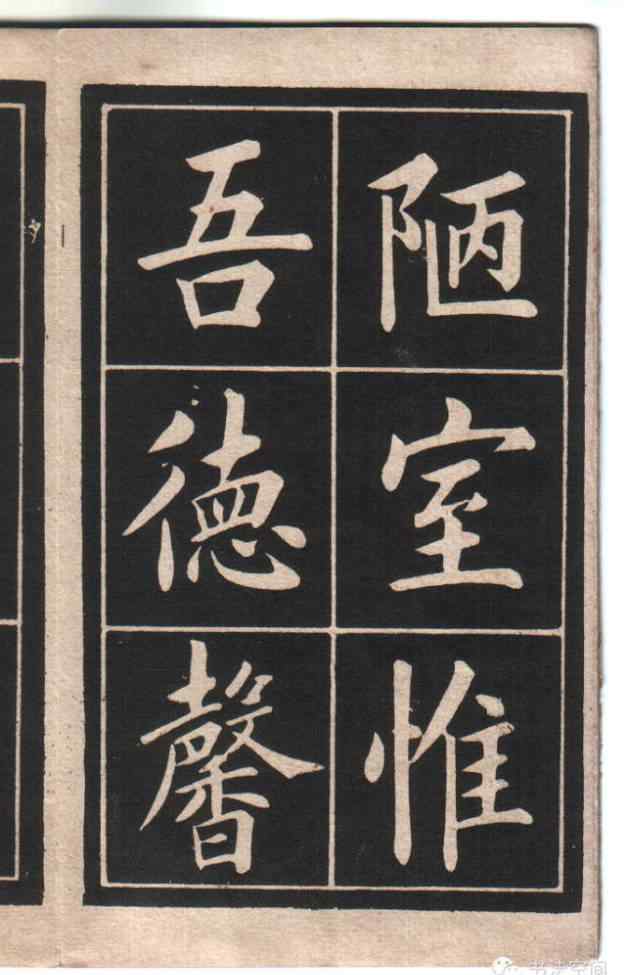 陋室惟
吾德馨
书法空间